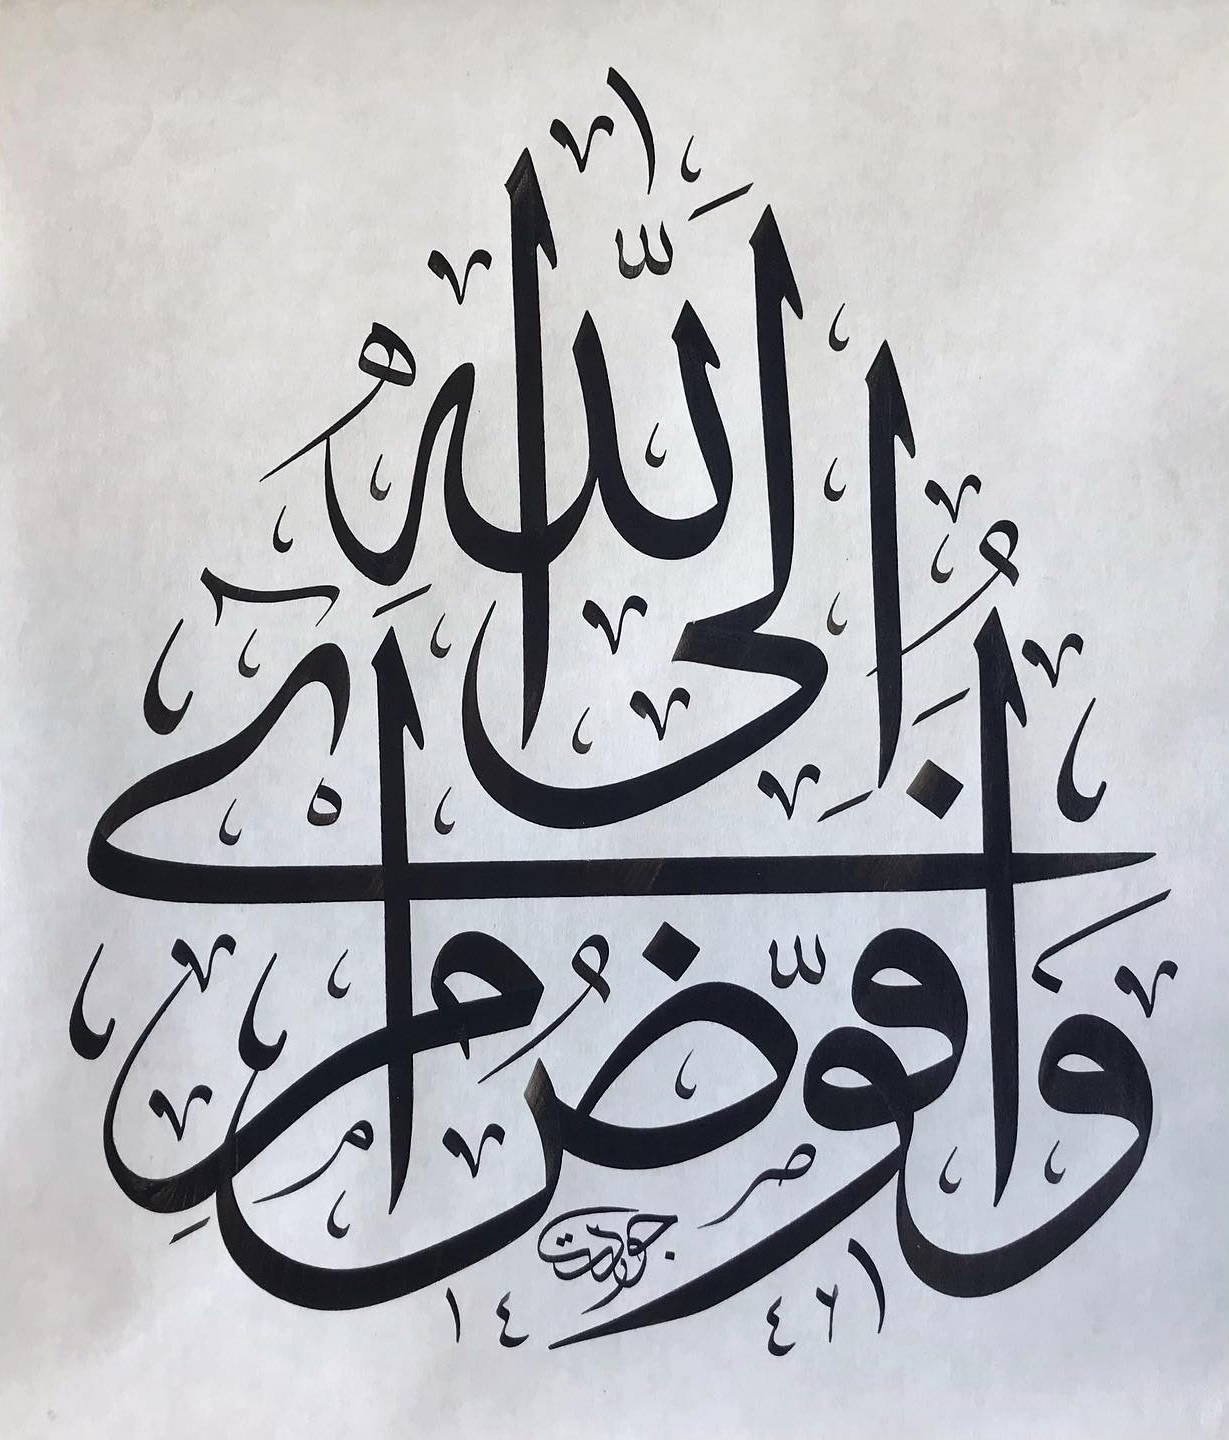 وَأُفَوِّضُ أَمْرِي
إِلَى اللّٰهِ
جودت
١٤ ٤٦